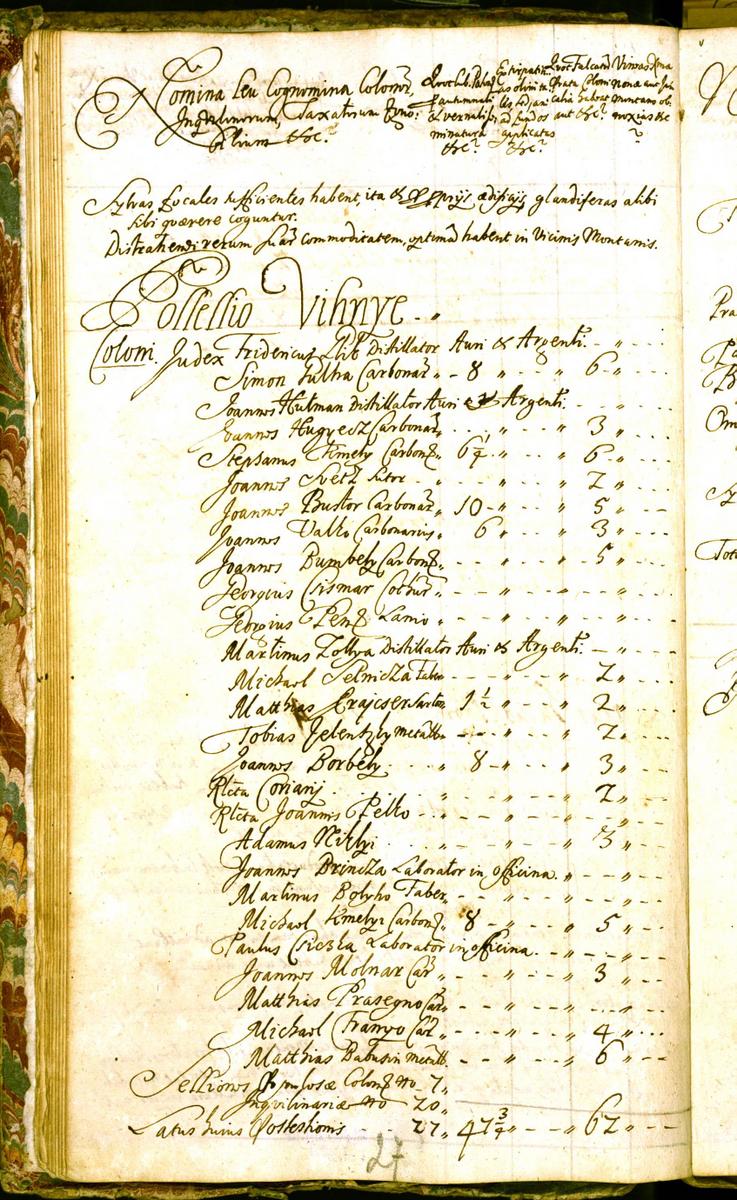 Nomina seu Cognomina Colonor̃,
Inqvilinorum, Taxatrum &no:
bilium &c̃.
Quot sub. Posoñ
autumnali
& vernali
minatura
&c̃.
Extirpatu
as olim in
ad fundos
applicatus
&c̃.
Quot Falcator̃
Prata Coloni
calia habeat
aut &c̃.
Vineas
nonæ aut
montano ob
noxias &c
Sylvas focales sufficientes habent, ita & proprijs ædificijs glandiferas alibi
sibi quærere coguntur.
Distrahendi rerum suar̃ commoditatem, optimã habent in Vicinis Montanis.
Possessio Vihnye.
Coloni. Judex Fridericus Distillator Auri & Argenti.
Simon Sulha Carbonar̃ 8 6
Joannes Hutman Distillator Auri & Argenti.
Joannes Hugyecz Carbonar̃ 3
Stephanus Kmety Carbonr̃ 6 1/4 6
Joannes Svetz Sutor 2
Joannes Bustor Carbonar̃ 10 5
Joannes Valko Carbonarius 6 3
Joannes Bumbely Carbonr̃ 5
Georgius Csismar Cothur̃
Georgius Penr̃ Lanio
Martinus Zollya Distillator Auri & Argenti.
Michael Selnicza Faber 2
Matthias Krajcser Sartor 9 1/2 2
Tobias Jelenszky Metallr̃ 2
Joannes Borbely 8 3
Rlcta Corianj 2
Rlcta Joannis Petko
Adamus Nitlyi 3
Joannes Brincza Laborator in officina
Martinus Bolyho Faber
Michael Kmetyi Carbonr̃ 8 5
Paulus Csiczka Laborator in officina
Joannes Molnar Car̃ 3
Matthias Prasegno Car̃
Michael Franyo Car̃ 4
Matthias Babusin Metallr̃ 6
Sessiones Populosæ Colonr̃ No 7
Inqvilinariæ No 20
Latus huius Possessionis 27 47 3/4 62
27